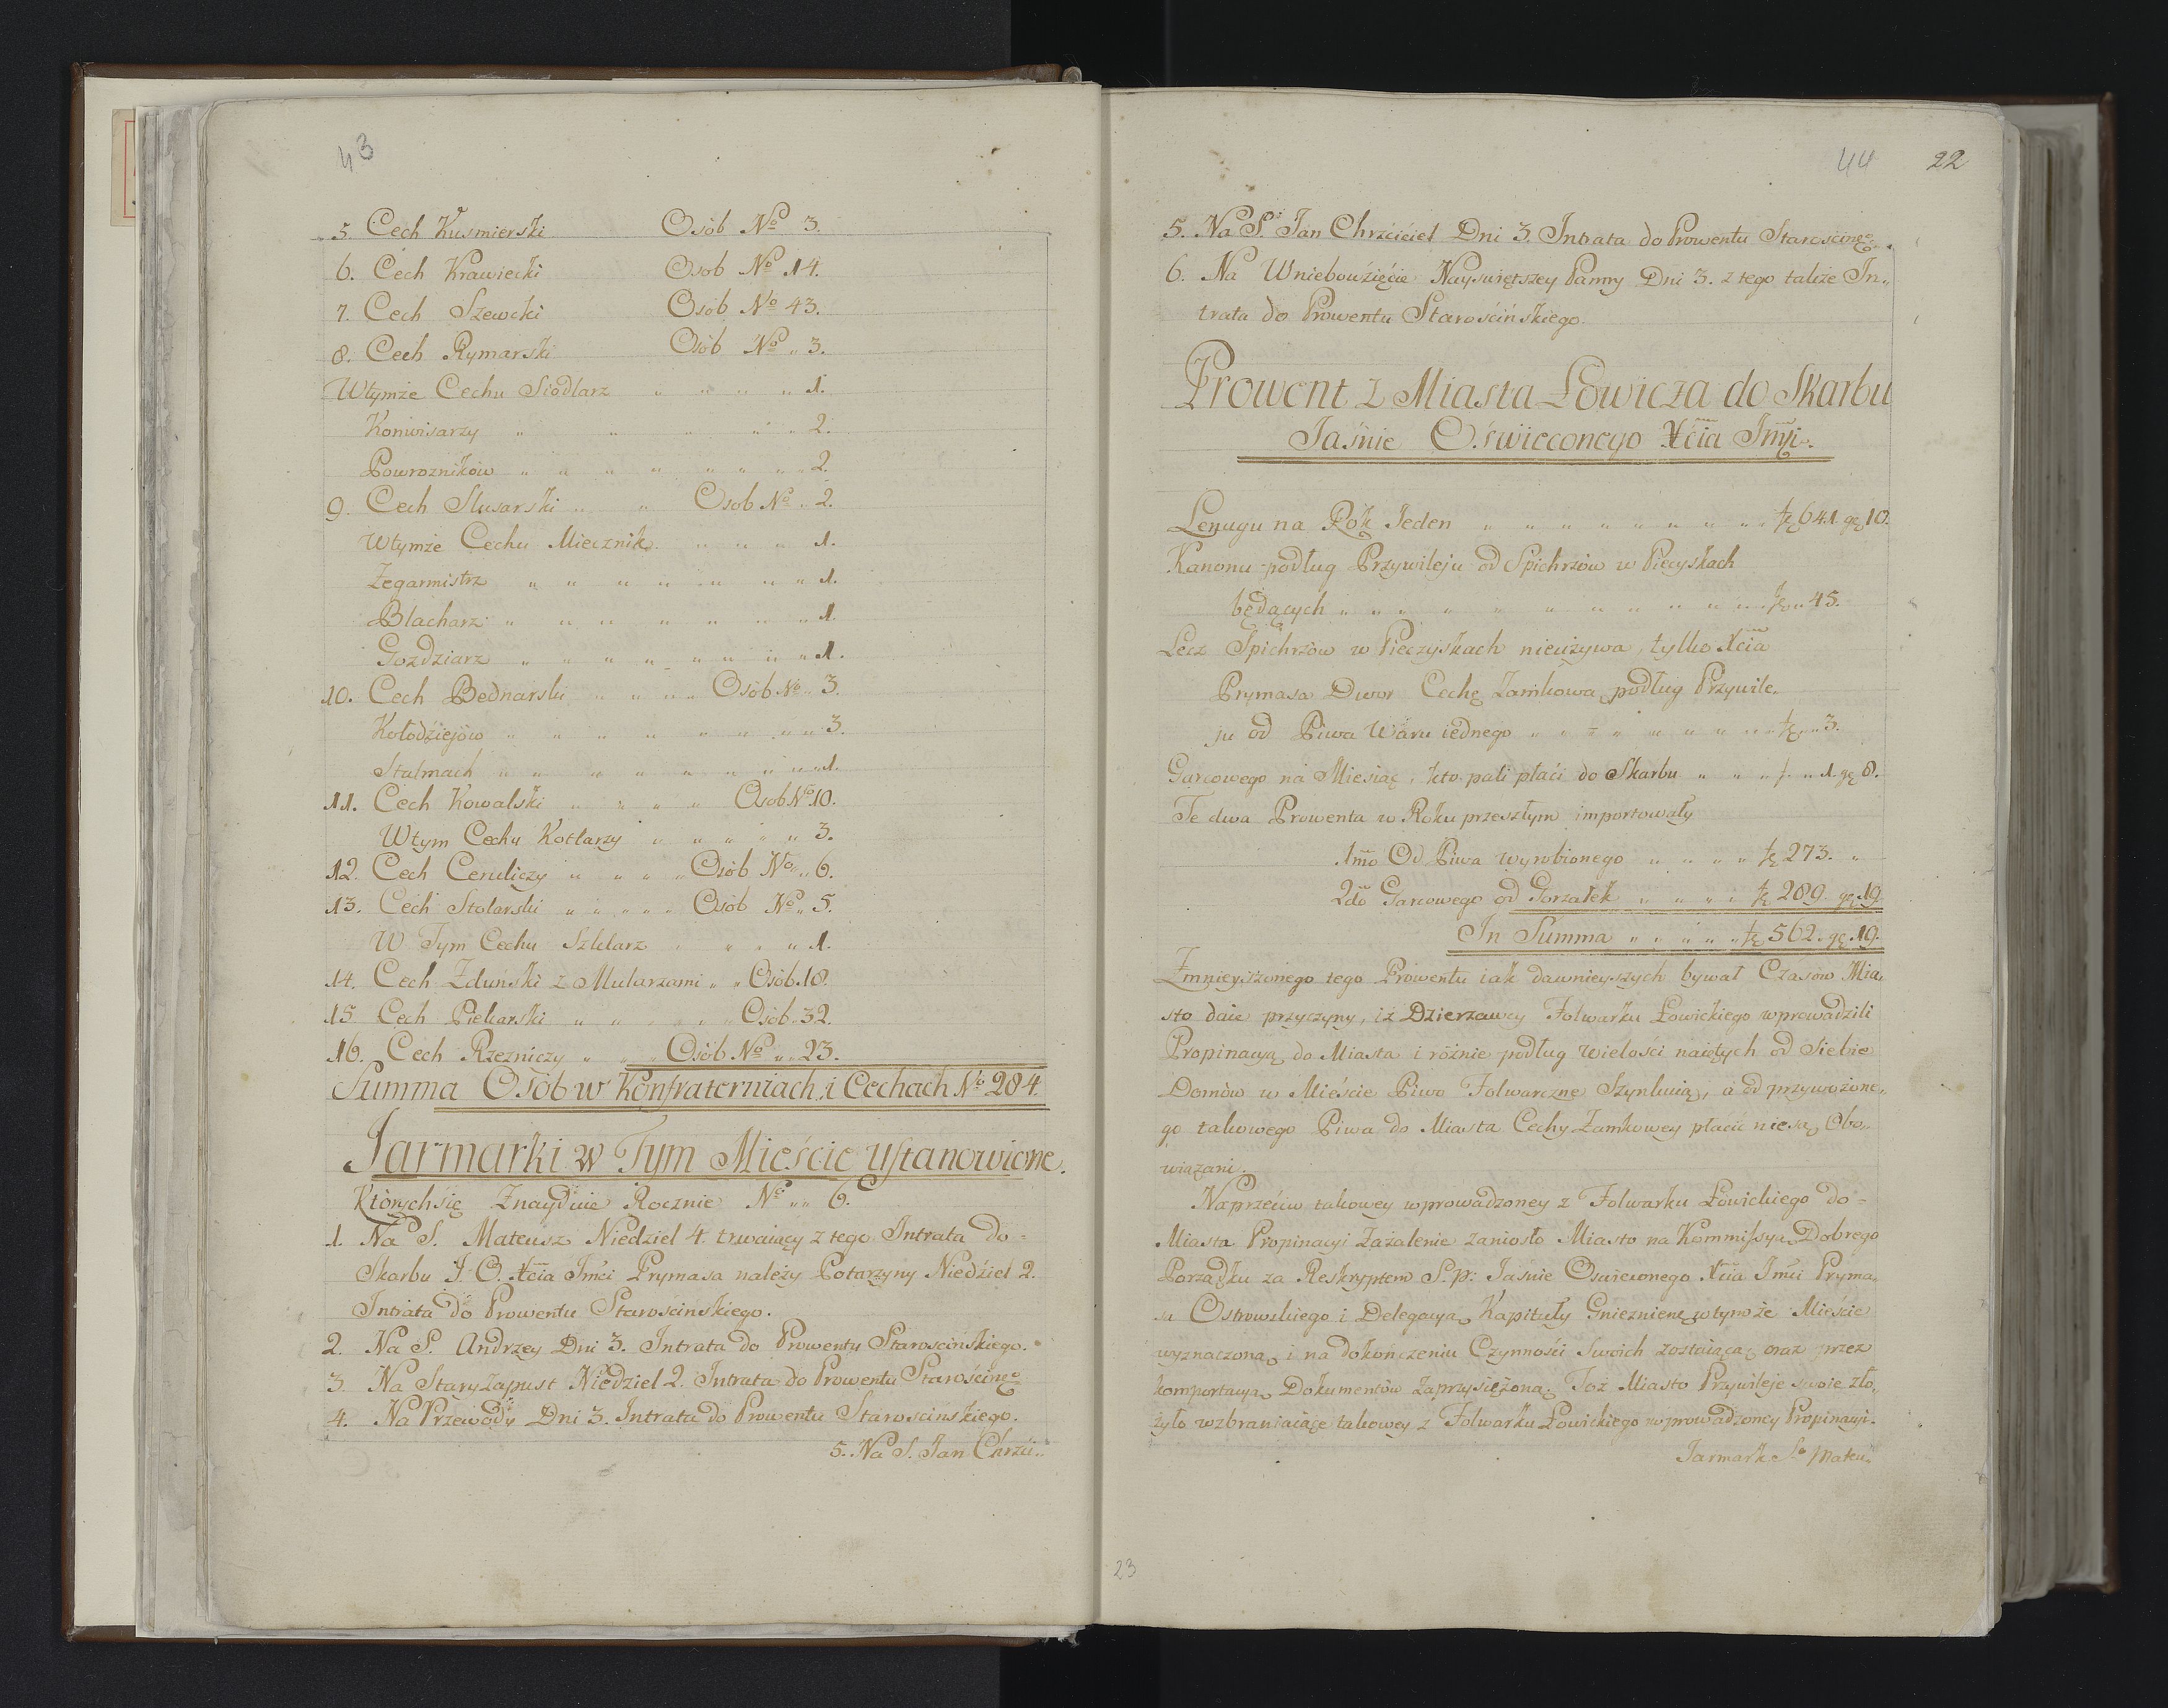 43
5. Cech Kusmierski Osób No 3.
6. Cech Krawiecki Osób No 14.
7. Cech Szewcki Osób No 43.
8. Cech Rymarski Osób No „ 3.
Wtymże Cechu Siodlarz „ „ „ „ 1.
Konwisarzy „ „ „ „ „ 2.
Powrozników „ „ „ „ „ „ „ „ 2.
9. Cech Slusarski „ „ Osób No „ 2.
Wtymże Cechu Miecznik „ „ „ 1.
Zegarmistrz „ „ „ „ „ „ „ 1.
Blacharz „ „ „ „ „ „ „ 1.
Gozdziarz „ „ „ „ „ „ „ „ 1.
10. Cech Bednarski „ „ „ „ Osób No „ 3.
Kołodziejów „ „ „ „ „ „ „ „ 3.
Stalmach „ „ „ „ „ „ „ „ 1.
11. Cech Kowalski „ „ „ „ Osób No 10.
Wtym Cechu Kotlarzy „ „ „ „ „ 3.
12. Cech Ceruliczy „ „ „ „ Osób No „ 6.
13. Cech Stolarski „ „ „ „ „ Osób No „ 5.
W Tym Cechu Szklarz „ „ „ „ 1.
14. Cech Zduński z Mularzami „ „ Osób 18.
15. Cech Piekarski „ „ „ „ „ Osób „ 32.
16. Cech Rzezniczy „ „ „ Osób No „ 23.
Summa Osób w Konfraterniach i Cechach No 284.
Jarmarki w Tym Mieście Ustanowione.
Których się Znayduie Rocznie No „ 6.
1. Na S. Mateusz Niedziel 4. trwaiący z tego Intrata do
Skarbu J. O. Xcia Jmci Prymasa należy Potarzyny Niedziel 2.
Intrata do Prowentu Starościnskiego.
2. Na S. Andrzey Dni 3. Intrata do Prowentu Starościnskiego.
3. Na Stary Zapust Niedziel 2. Intrata do Prowentu Starościngo
4. Na Przewody Dni 3. Intrata do Prowentu Starościnskiego.
5. Na S. Jan Chrzci„
44 22
5. Na S. Jan Chrzciciel Dni 3. Intrata do Prowentu Starościngo
6. Na Wniebowzięcie Nayswiętszey Panny Dni 3. z tego także In„
trata do Prowentu Starościńskiego.
Prowent z Miasta Łowicza do Skarbu
Jaśnie Oświeconego Xcia Jmci.
Lenugu na Rok Jeden „ „ „ „ „ „ „ „ fł 641. gr 10.
Kanonu podług Przywileju od Spichrzów w Pieczyskach
będących „ „ „ „ „ „ „ „ „ „ fł „ 45.
Lecz Spichrzów w Pieczyskach nieużywa, tylko Xcia
Prymasa Dwor Cechę Zamkową podług Przywile„
ju od Piwa Waru iednego „ „ „ „ „ „ „ „ fł „ 3.
Garcowego na Miesiąc, kto pali płaci do Skarbu „ „ „ f „ 1. gr 8.
Te dwa Prowenta w Roku przeszłym importowały
1mo Od Piwa wyrobionego „ „ „ „ fł 273. „
2do Garcowego od Gorzałek „ „ „ „ fł 289. gr 19.
In Summa „ „ „ „ „ fł 562. gr 19.
Zmnieyszonego tego Prowentu iak dawnieyszych bywał Czasów Mia„
sto daie przyczyny, iż Dzierzawcy Folwarku Łowickiego wprowadzili
Propinacyą do Miasta i różnie podług wielości naiętych od Siebie
Domów w Mieście Piwo Folwarczne Szynkuią, a od przywożone„
go takowego Piwa do Miasta Cechy Zamkowey płacić niesą Obo„
wiązani.
Naprzeciw takowey wprowadzoney z Folwarku Łowickiego do
Miasta Propinacyi Zażalenie zaniosło Miasto na Kommissyą Dobrego
Porządku za Reskryptem S. p: Jaśnie Oświeconego Xcia Jmci Pryma„
sa Ostrowskiego i Delegacyą Kapituły Gnieznienę wtymże Mieście
wyznaczoną, i na dokończeniu Czynności Swoich zostaiącą, oraz przez
komportacyą Dokumentów zaprzysiężoną. Toż Miasto Przywileje swoie zło„
żyło wzbraniaiące takowey z Folwarku Łowickiego wprowadzoney Propinacyi.
Jarmark So Mateu„
23